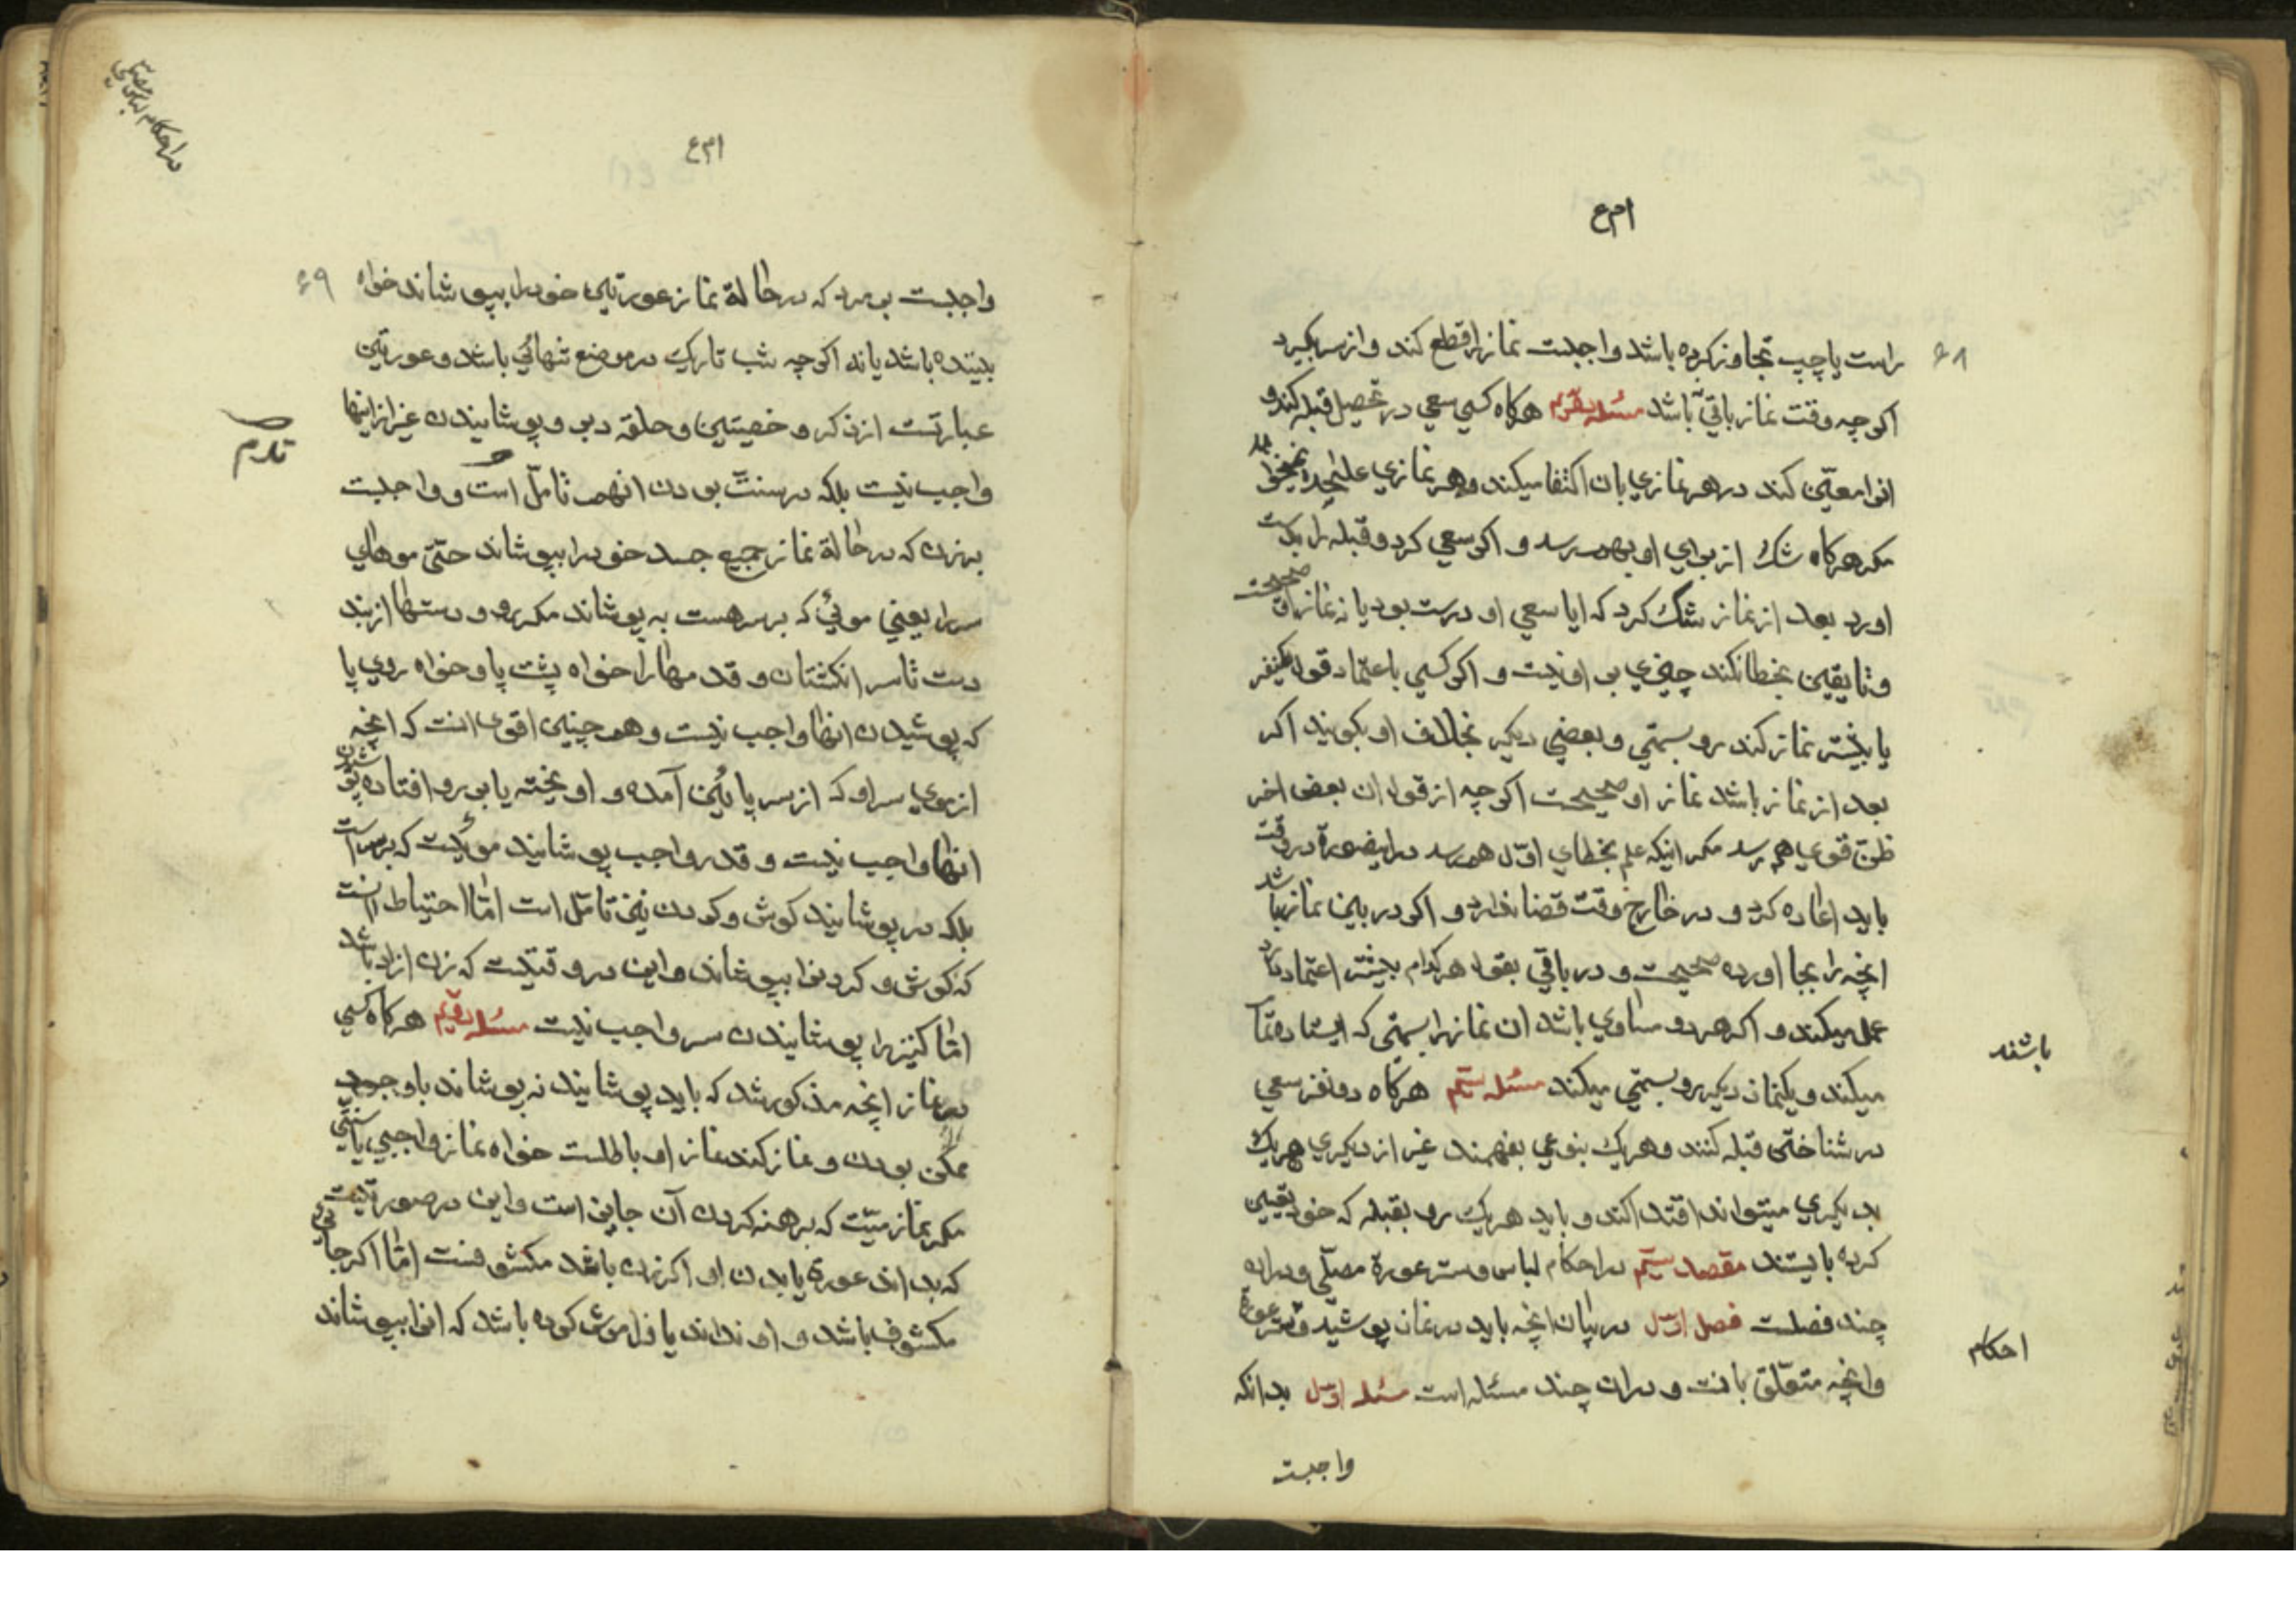 راست یا چپ تجاوز کرده باشد واجبست نماز را قطع کند و از سر بگیرد
اکرچه وقت نماز باقی باشد مسئله هرکاه کسی سعی در تحصیل قبله کند و
انرا معیّن کند در هر نمازی بان اکتفا میکند و هر نمازی علیٰحده
مکر هرکاه شک از برای او بهم رسد و اکر سعی کرد و قبله را بدست
اورد بعد از نماز شک کرد که ایا سعی او درست بود یا نه نماز او صحیحست
و تا یقین بخطا نکند چیزی بر او نیست و اکر کسی باعتماد قول یکنفر
یا بیشتر نماز کند رو بسمتی و بعضی دیکر بخلاف او بکویند اکر
بعد از نماز باشد نماز او صحیحست اکرچه از قول ان بعض اخر
ظنّ قوی بهم رسد مکر اینکه علم بخطای اوّل بهم رسد در اینصورة در وقت
باید اعاده کرد و در خارج وقت قضا ندارد و اکر در بین نماز باشد
انچه را بجا اورده صحیحست و در باقی بقول هرکدام بیشتر اعتماد دارد
عمل میکند و اکر هر دو مساوی باشد ان نماز را بسمتی که ایستاده تمام
میکند و یکنماز دیکر رو بسمتی میکند مسئله هرکاه دو نفر سعی
باشند
در شناختن قبله کنند و هر یک بنوعی بفهمند غیر از دیکری هر یک
بدیکری میتواند اقتدا کند و باید هر یک رو بقبله که خود یقین
کرده بایستند مقصد سیّم در احکام لباس و ستر عورة مصلّی و در ان
چند فصلست فصل اوّل در بیان انچه باید در نماز پوشید و ستر عورة
احکام
و انچه متعلّق بانست و در ان چند مسئله است مسئله اوّل بدانکه
واجبست
واجبست بر مرد که در حالة نماز عورتین خود را بپوشاند خواه
بیننده باشد یا نه اکرچه شب تاریک در موضع تنهائی باشد و عورتین
عبارتست از ذکر و خصیتین و حلقه دبر و پوشانیدن غیر از اینها
واجب نیست بلکه در سنّت بودن انهم تامّل است و واجبست
بر زن که در حالة نماز جمیع جسد خود را بپوشاند حتّیٰ موهای
سر را یعنی موئی که بر سر هست به پوشاند مکر رو و دستها از بند
دست تا سر انکشتان و قدمها را خواه پشت پا و خواه روی پا
که پوشیدن انها واجب نیست و همچنین اقوی انست که انچه
از موی سر او که از سر پائین آمده و اویخته یا بر رو افتاده پوشیدن
انها واجب نیست و قدر واجب پوشانیدن موئیست که بر سر است
بلکه در پوشانیدن کوش و کردن نیز تامّل است امّا احتیاط انست
که کوش و کردن را بپوشاند و این در وقتیست که زن ازاد باشد
امّا کنیز را پوشانیدن سر واجب نیست مسئله هرکاه کسی
در نماز انچه مذکور شد که باید پوشانید نه پوشاند با وجود
ممکن بودن و نماز کند نماز او باطلست خواه نماز واجبی یا سنّتی
مکر نماز میّت که برهنه کردن آن جایز است و این در صورتیست
که بداند عورة یا بدن او اکر زن باشد مکشوفست امّا اکر جائی
مکشوف باشد و او نداند یا فراموش کرده باشد که انرا بپوشاند